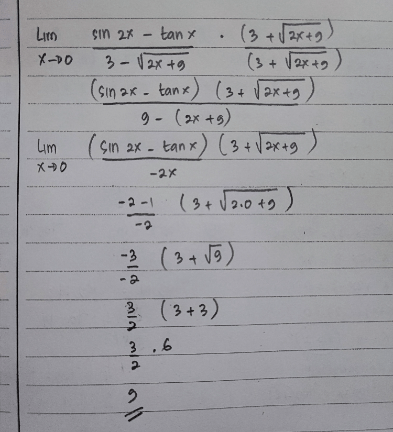 Lim sin 2x - tan x . (3 + √2x+9)
x→0 3 - √2x+9 (3 + √2x+9)
(sin 2x - tan x) (3 + √2x+9)
9 - (2x+9)
Lim (sin 2x - tan x) (3 + √2x+9)
x→0 -2x
-2-1 (3 + √2.0+9)
-2
-3 (3 + √9)
-2
3 (3+3)
2
3 . 6
2
9